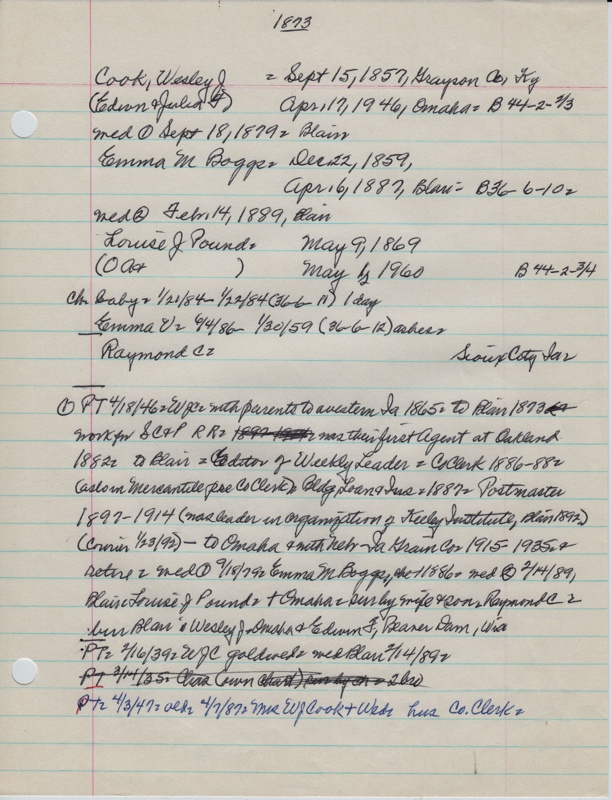 1873
Cook, Wesley J = Sept 15, 1857, Grayson Co, Ky
(Edwn & Julia F) Apr. 17, 1946, Omaha = B 44-2-2/3
med ① Sept 18, 1879 = Blair
Emma M Boggs = Dec 22, 1859,
Apr. 6, 1887, Blair = B36-6-10 =
med ② Feb. 14, 1889, Blair
Louise J Pound = May 9, 1869
( ) May 1960 B 44-2-3/4
ch Baby = 1/21/84 - 1/22/84 (36-6-11) 1 day
Emma V = 9/4/86 - 1/30/59 (36-6-12) ashes =
Raymond C = Sioux City Ia =
① PT 4/18/46 = WJC = with parents to western Ia 1865 = to Blair 1873
work for SC&P RR = was their first Agent at Oakland
1882 = to Blair = Editor of Weekly Leader = Co Clerk 1886-88 =
(also in Mercantile pre Co Clerk) = Bldg, Loan & Ins = 1887 = Postmaster
1897-1914 (was leader in organization of Keeley Institute, Blair 1892)
(Courier 1/23/92) - to Omaha & with Nebr-Ia Grain Co = 1915-1935 = &
retire = med ① 9/18/79 = Emma M Boggs, 1886 = med ② 2/14/89,
Blair = Louise J Pound = + Omaha = surv by wife & son, Raymond C =
bur Blair Wesley J, Omaha & Edwin F, Beaver Dam, Wis
PT = 2/16/39 = WJC gold wed = med Blair 2/14/89 =
PT 3/14/35 = (own chart)
PT = 4/3/47 = 4/7/87 = Mrs WJ Cook + Wed = hus Co. Clerk =